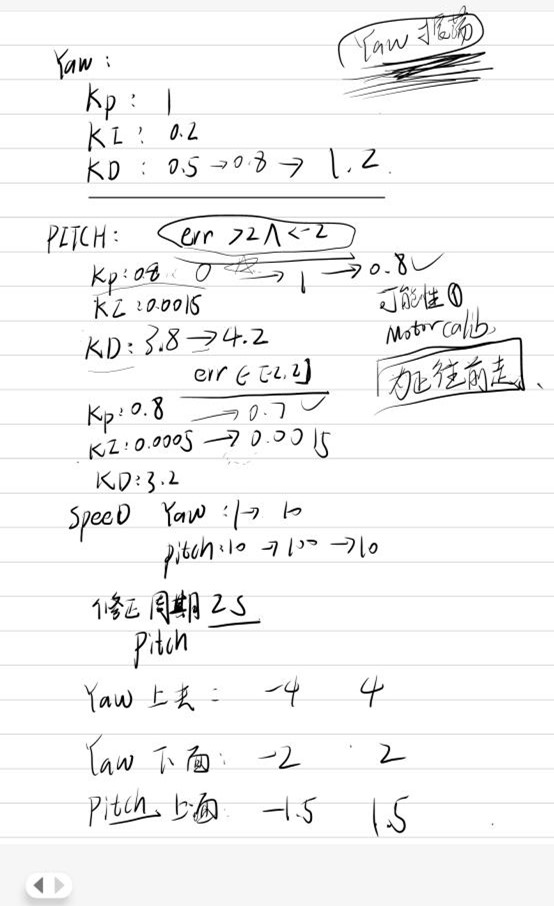 Yaw 振荡
Yaw :
Kp : 1
KI : 0.2
KD : 0.5 → 0.8 → 1.2
PITCH: err >2 Λ <-2
Kp: 08 0 → 1 → 0.8 ✓
KI: 0.0015
可能性①
KD: 3.8 → 4.2
Motor calib.
err ∈ [-2,2]
为正往前走
Kp: 0.8 → 0.7 ✓
KI: 0.0005 → 0.0015
KD: 3.2
SpeeD Yaw : 1 → 10
pitch: 10 → 100 → 10
修正周期 2S
Pitch
Yaw 上去 : -4 4
Yaw 下面 : -2 2
Pitch 上面 -1.5 1.5